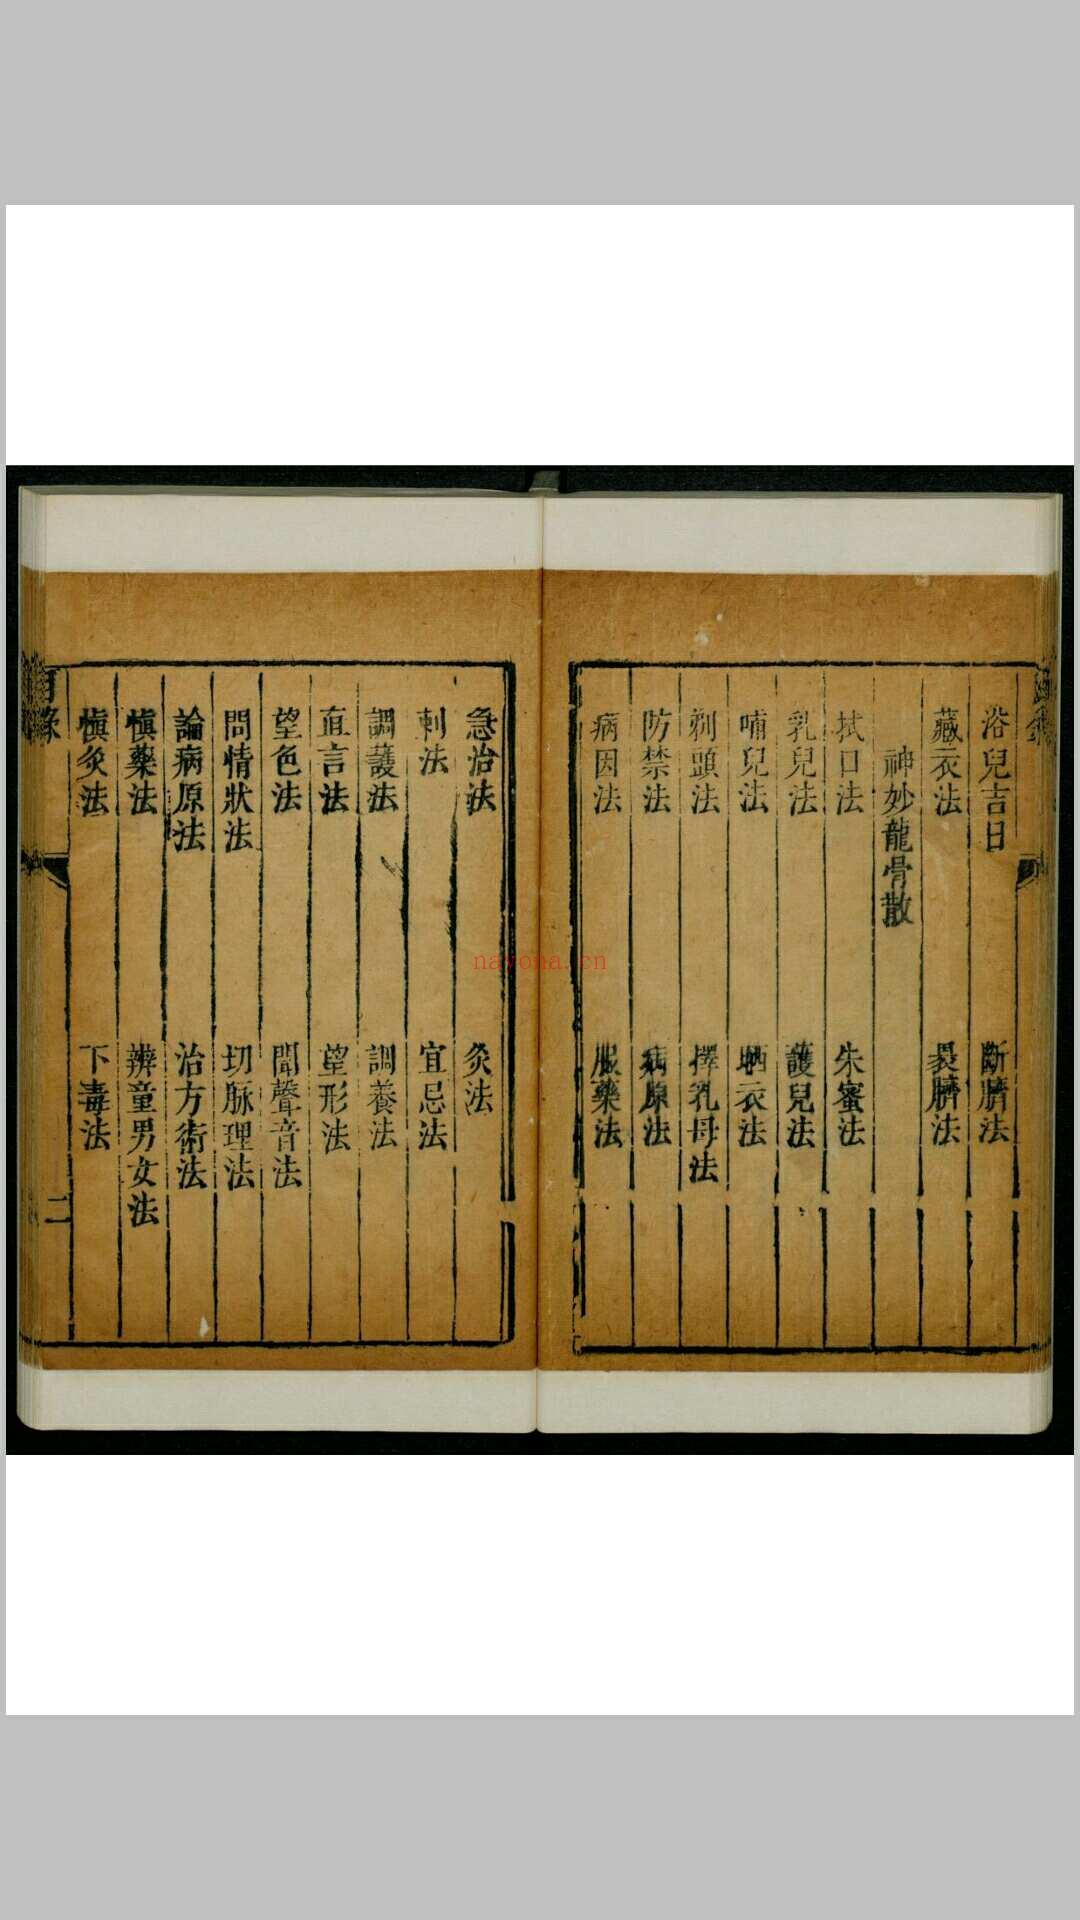 浴兒吉日　斷臍法
藏衣法　裹臍法
神妙龍骨散
拭口法　朱蜜法
乳兒法　護兒法
哺兒法　晒衣法
剃頭法　擇乳母法
防禁法　病原法
病因法　服藥法
急治法　灸法
刺法　宜忌法
調護法　調養法
直言法　望形法
望色法　聞聲音法
問情狀法　切脉理法
論病原法　治方術法
慎藥法　辨童男女法
慎灸法　下毒法
目録　二
nayona.cn